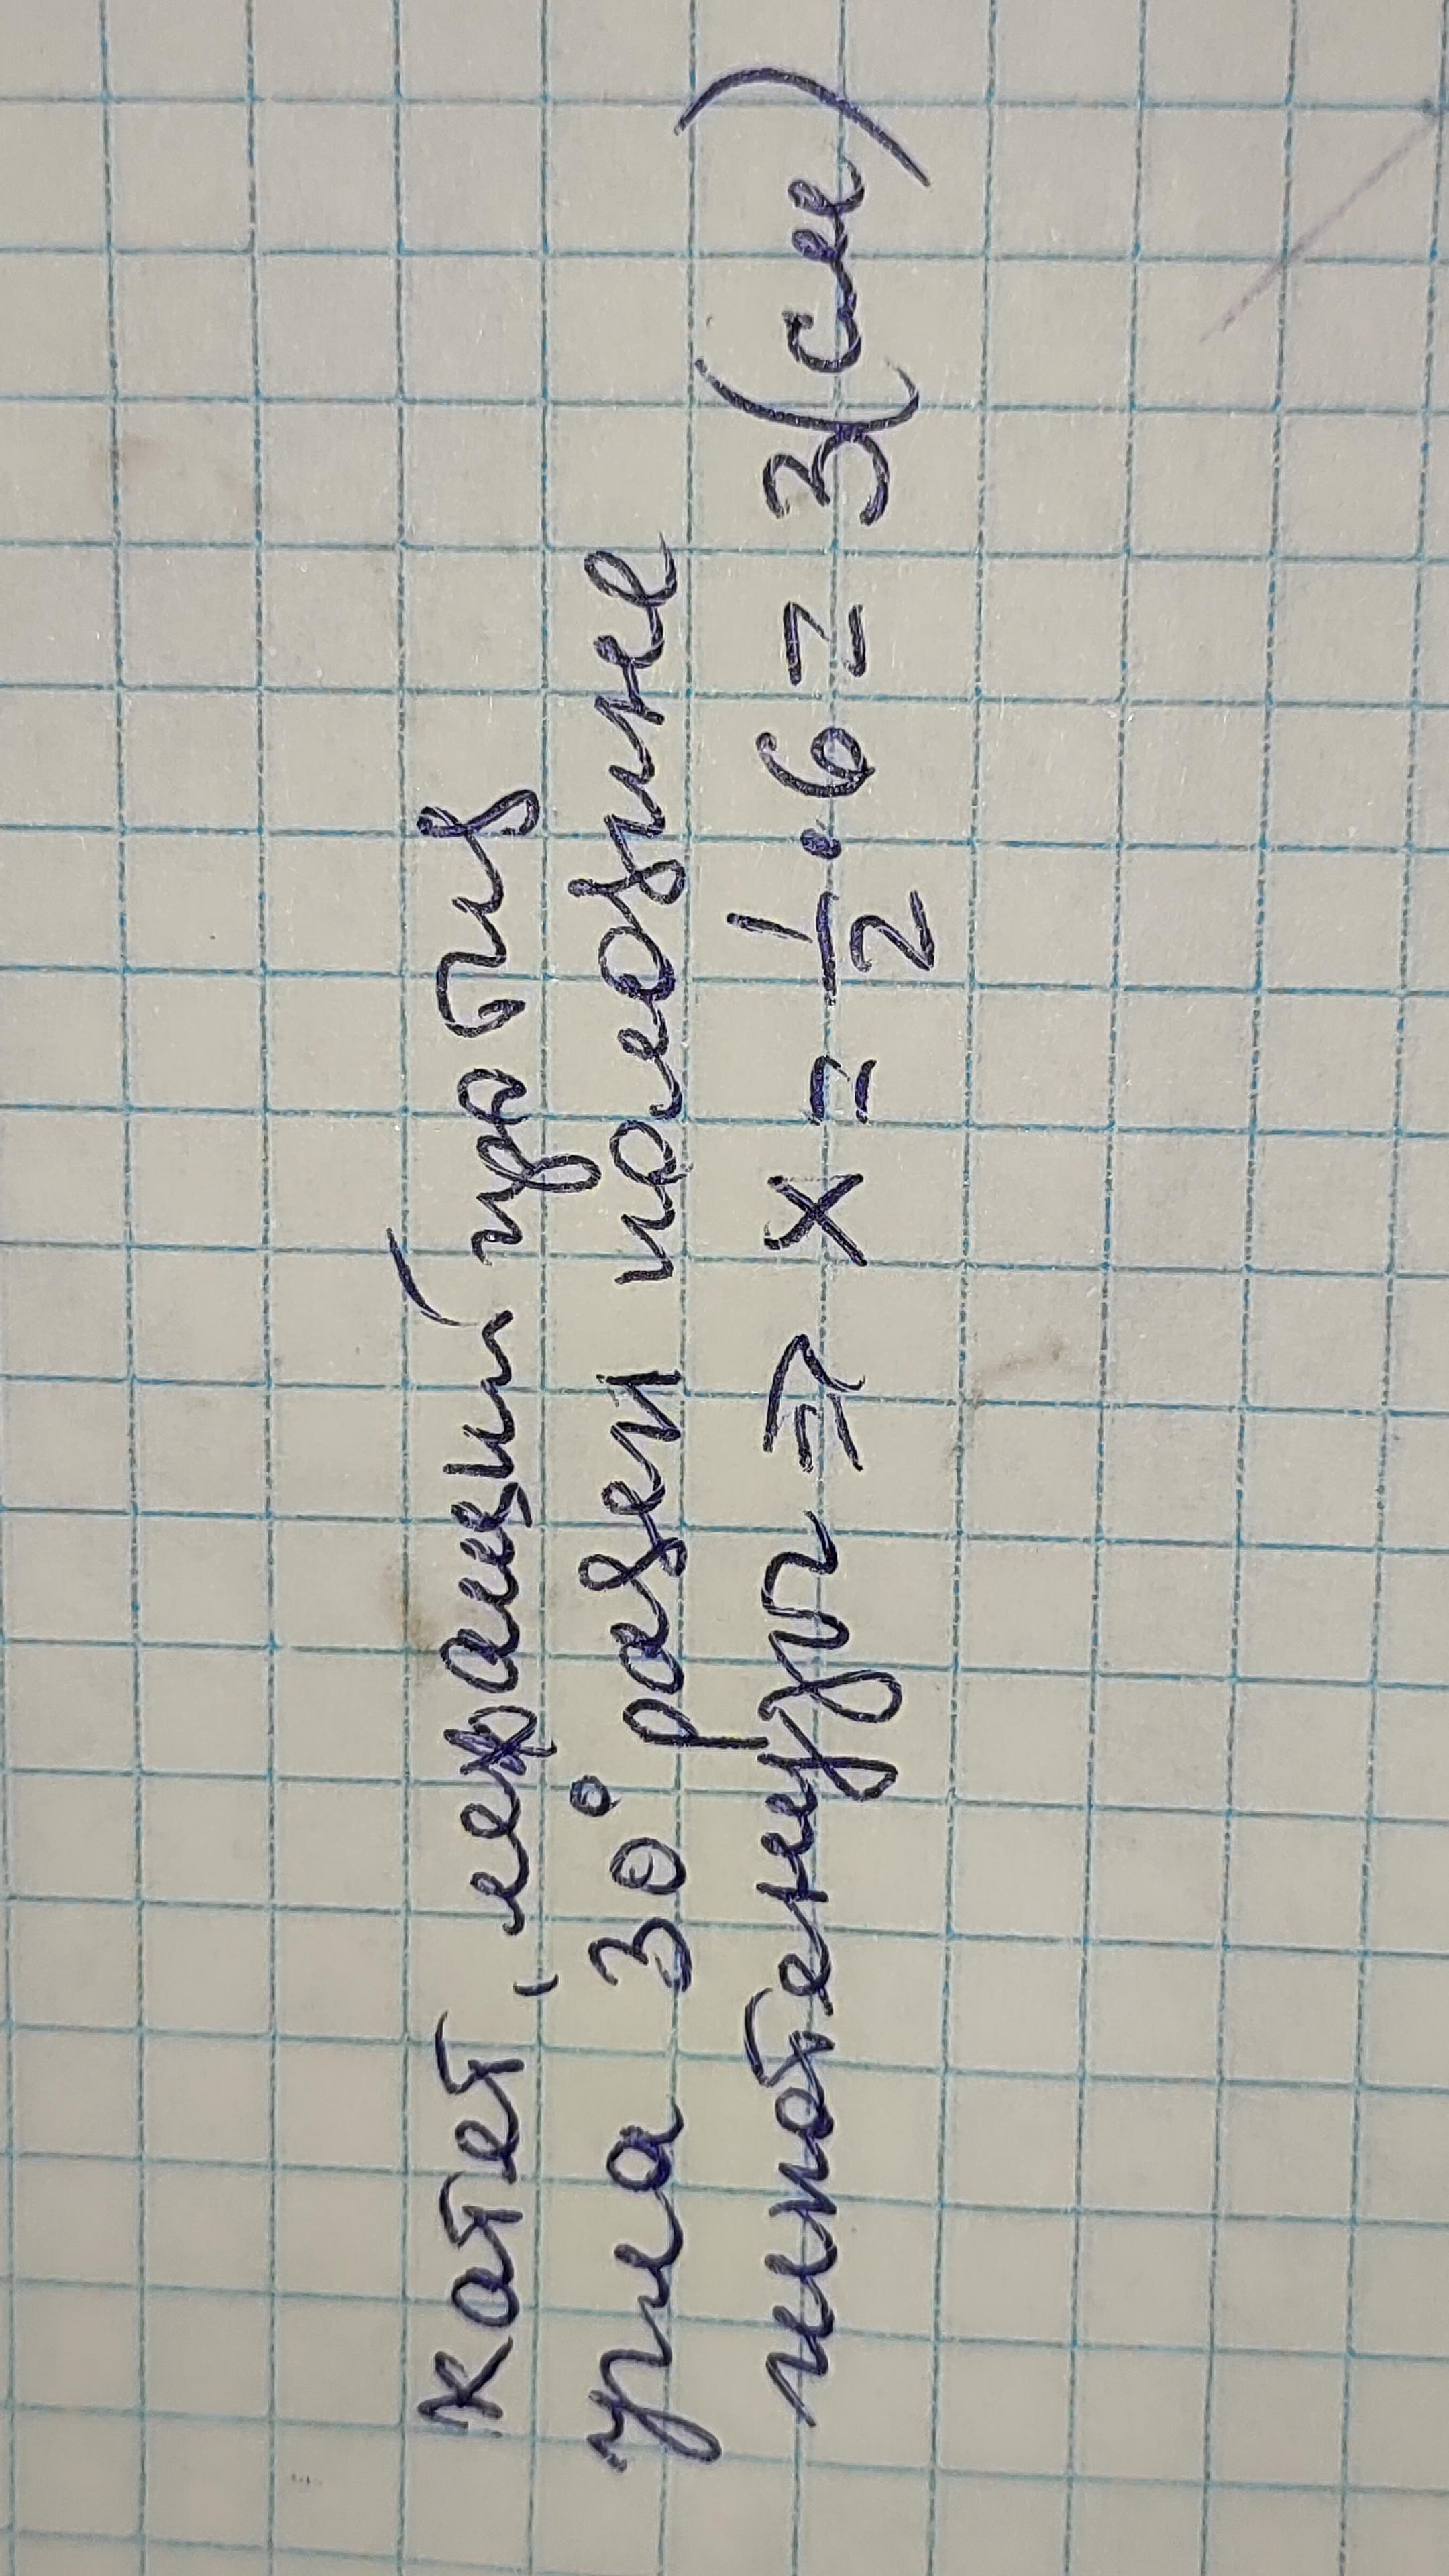 Катет, лежащий против
угла 30° равен половине
гипотенузы => x = 1/2 · 6 = 3(см)